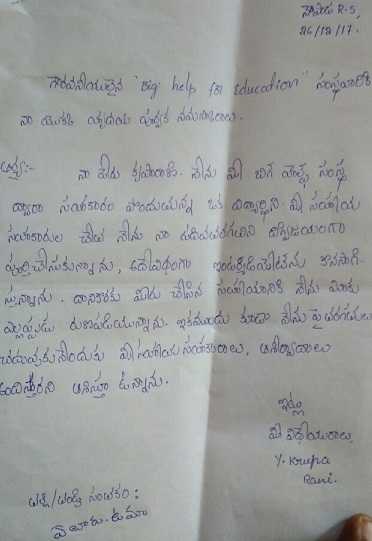 సామర్ల R.S,
26/12/17.
గౌరవనీయులైన "Big help for Education" సంస్థవారికి
నా యొక్క హృదయ పూర్వక నమస్కారాలు.
ఆర్య:-
నా పేరు కృపారాణి. నేను మీ బిగ్ హెల్ప్ సంస్థ
ద్వారా సహకారం పొందుచున్న ఒక విద్యార్థిని. మీ సహాయ
సహకారుల చేత నేను నా పదవతరగతిని దిగ్విజయంగా
పూర్తిచేసుకున్నాను, అదేవిధంగా ఇంటర్మీడియేట్‌ను కొనసాగి-
స్తున్నాను. దానికొరకు మీరు చేసిన సహాయానికి నేను మీకు
ఎల్లప్పుడు రుణపడియున్నాను. ఇకముందు కూడా నేను పై తరగతులు
చదువుకునేందుకు మీ సహాయ సహకారాలు, ఆశీర్వాదాలు
అందిస్తారని ఆశిస్తూ ఉన్నాను.
ఇట్లు
మీ విధేయురాలు,
Y. Krupa
Rani.
తల్లి/తండ్రి సంతకం: